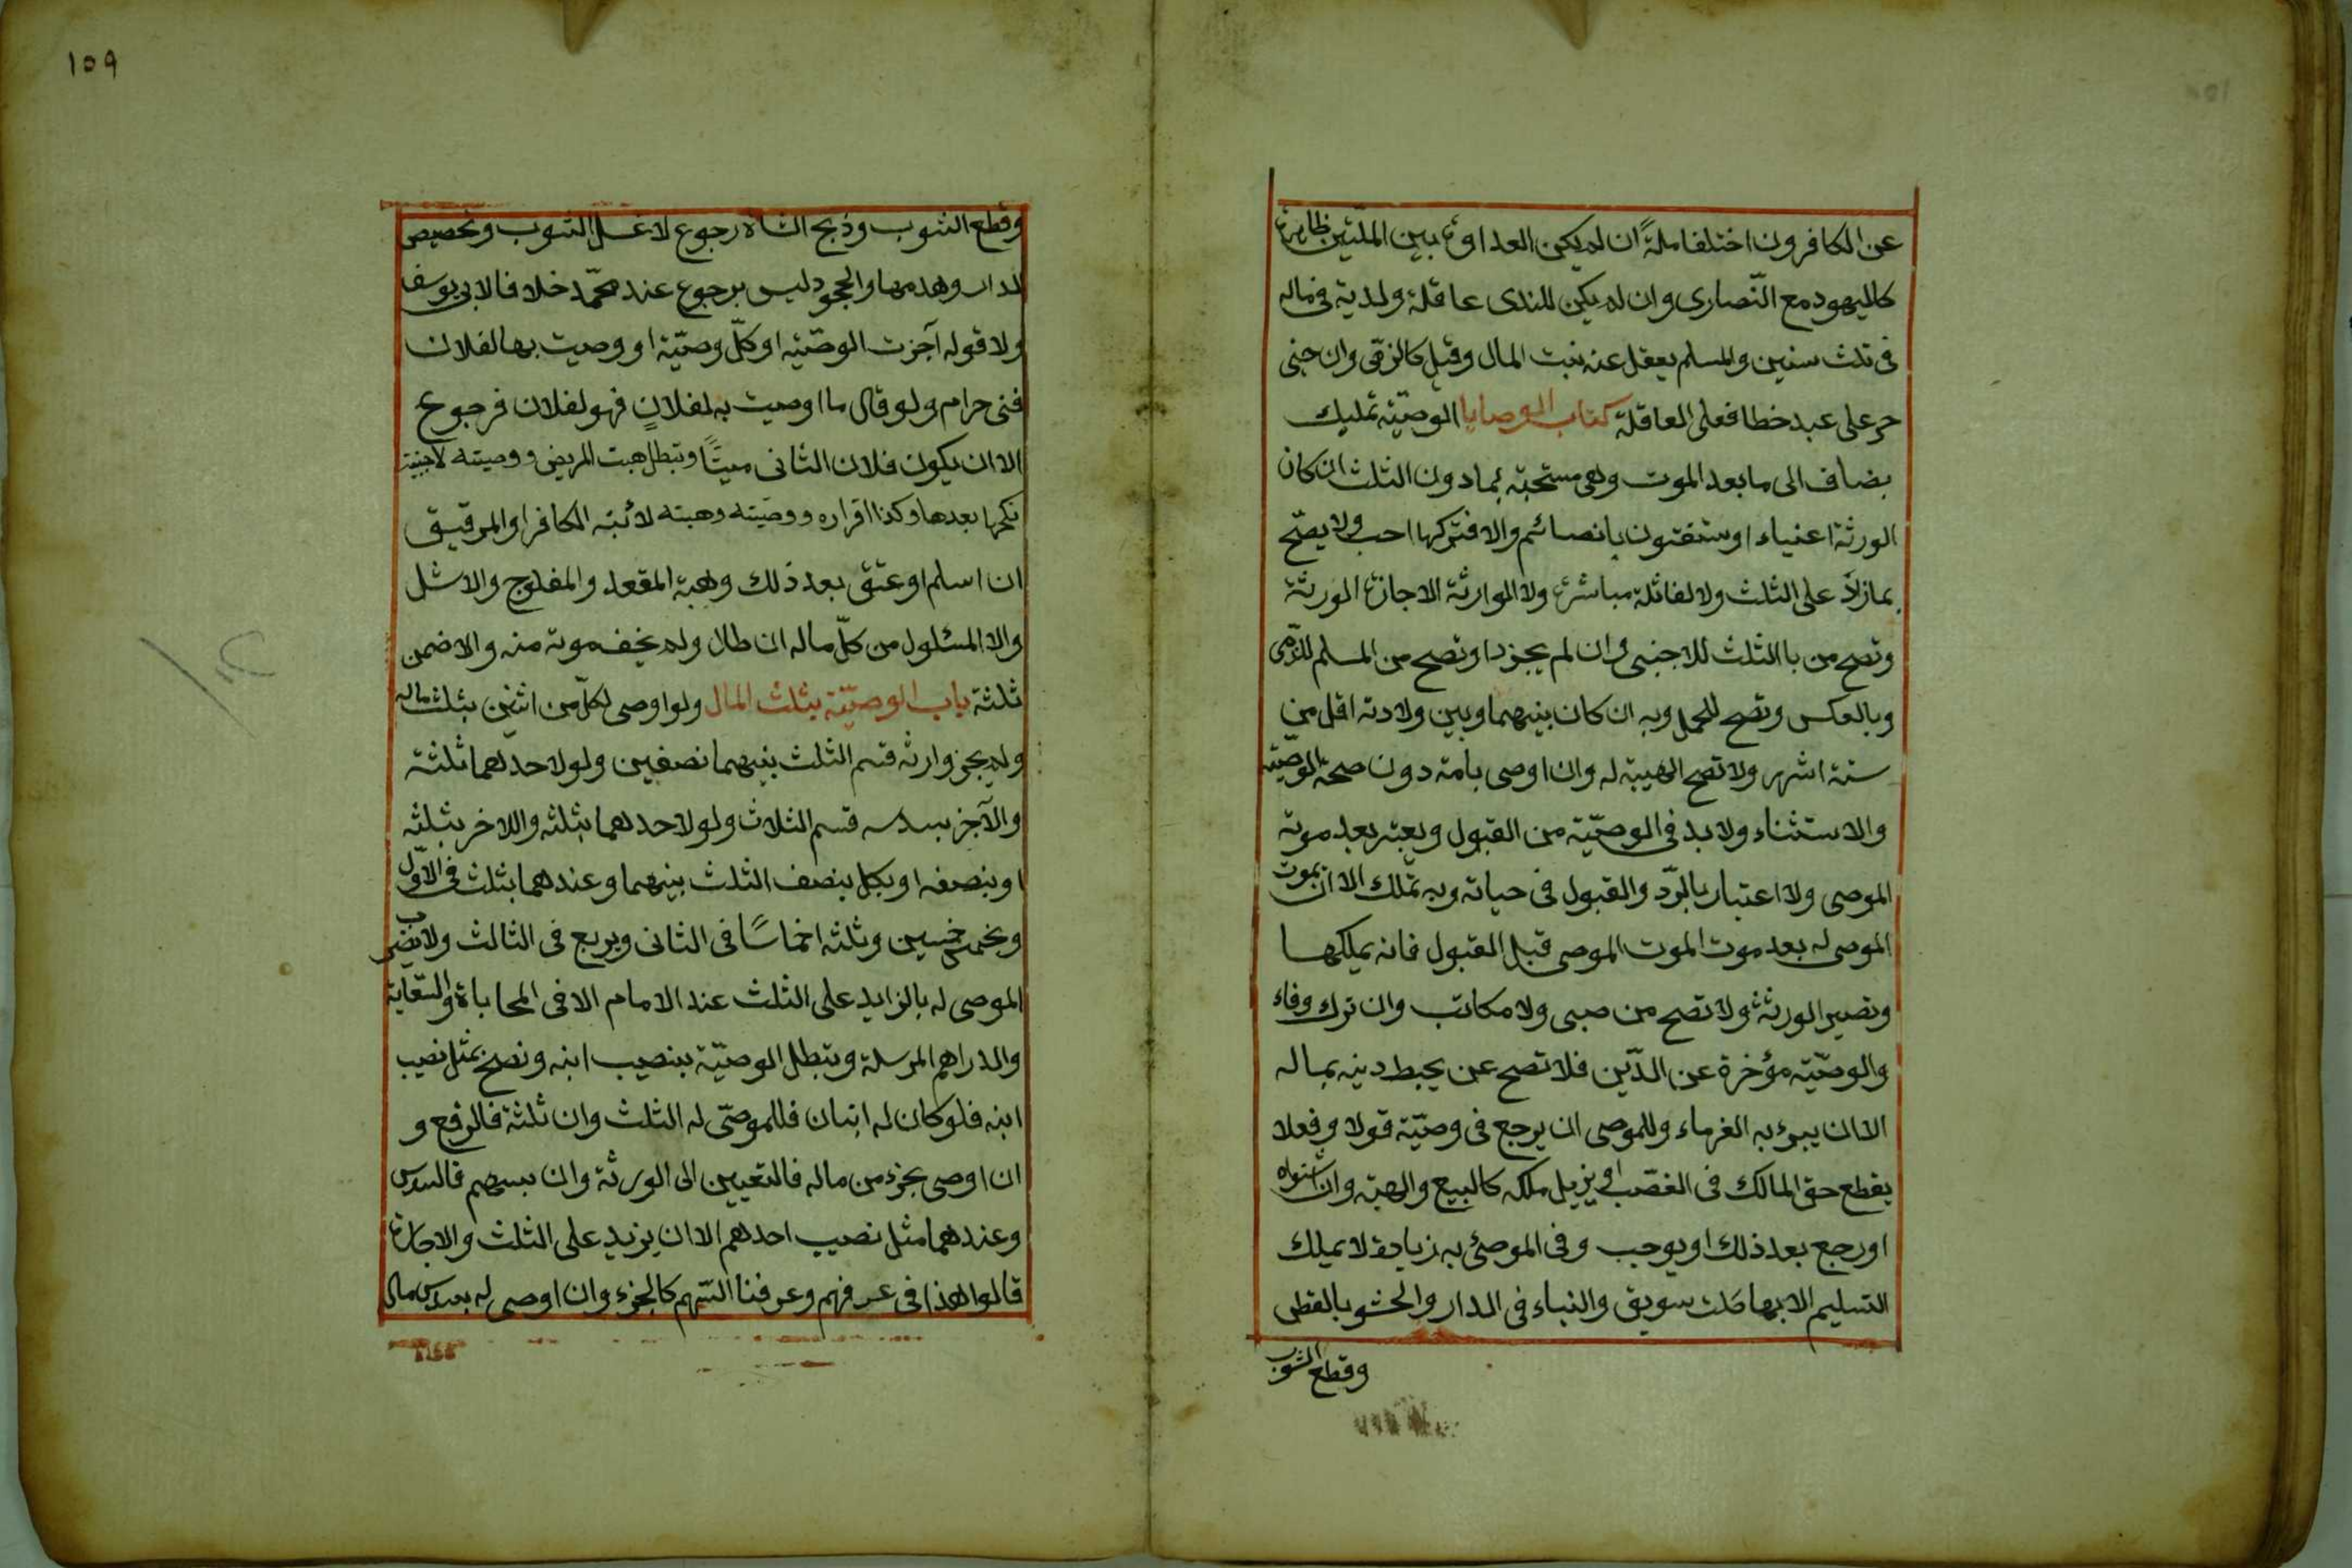 عن الكافرون اختلفا ملةً ان لم يكن العداوة بين الملتين ظاهرة
كاليهود مع النّصارى وان لم يكن للذى عاقلة ولدية فى ماله
فى ثلث سنين والمسلم يعقل عنه بيت المال وقيل كالزقى وان جنى
حر على عبد خطا فعلى العاقلة كتاب الوصايا الوصيّة تمليك
بضاف الى ما بعد الموت وهى مستحبّه بما دون الثلث ان كان
الورثة اغنياء او ستغنون بانصبائهم والا فتركها احب ولا يصّح
بما زاد على الثلث ولا لقاتلة مباشرة ولا الوارثة الا جازة الورثة
وتصح من با الثلث للاجنبى وان لم يجزدا وتصح من المسلم للذمى
وبالعكس وتصح للحمل وبه ان كان بينهما وبين ولادته اقل من
ستة اشهر ولا تصح الهيبة له وان اوصى بامة دون صحة الوصيّة
والاستثناء ولا بد فى الوصيّة من القبول ويعتبر بعد موته
الموصى ولا اعتبار بالرّد والقبول فى حياته وبه تملك الا ان بموت
الموصى له بعد موت الموت الموصى قبل القبول فانه يملكها
وتصير الورثة ولا تصح من صبى ولا مكاتب وان ترك وفاء
والوصيّه مؤخرة عن الدّين فلا تصح عن يحبط دينه بماله
الا ان يبوء به الغرماء وللموصى ان يرجع فى وصيّة قولا وفعلا
يقطع حق المالك فى الغصب او يزيل ملكه كالبيع والهبة وان شتراه
او رجع بعد ذلك او يوجب وفى الموصى به زيادة لا يملك
التسليم الا بها كلت سويق والبناء فى الدار والحشو بالقطى
وقطع الثوب
١٥٩
وقطع الثوب وذبح الشاة رجوع لا غسل الثوب وتخصيص
الدار وهدمها والجحود ليس برجوع عند محمّد خلافا لابى يوسف
ولا قوله آجزت الوصيّه او كلّ وصيّة او وصيت بها لفلان
فنى حرام ولو قال ما اوصيت به لفلانٍ فهو لفلان فرجوع
الا ان يكون فلان الثانى ميتًا وتبطل هبت المريض ووصيته لاجنبية
نكحها بعدها وكذا اقراره ووصيته وهبته لا بنه الكافر او الرقيق
ان اسلم او عتق بعد ذلك وهبة المقعد والمفلوج والاشل
والا المسلول من كلّ ماله ان طال ولم يخف موته منه والا ضمن
ثلثة باب الوصيّة بثلث المال ولو اوصى لكلّ من اثنين بثلث ماله
ولم يجز وارثه قسم الثلث بينهما نصفين ولو لاحدهما ثلثة
والآخر بسدسه قسم الثلاث ولو لاحدهما بثلثه واللاخر بثلثه
او بنصفه او بكل بنصف الثلث بينهما وعندهما بثلث فى الاوّل
وبخمس خمسين وثلثه اخماسًا فى الثانى وبربع فى الثالث ولا يضرب
الموصى له بالزايد على الثلث عند الامام الا فى المحاباة والسّعاية
والدراهم المرسلة وتبطل الوصيّة بنصيب ابنه ونصح بمثل نصيب
ابنه فلو كان له ابنان فللموصّى له الثلث وان ثلثة فالرفع و
ان اوصى بجزء من ماله فالتعيين الى الورثة وان بسهم فالسدس
وعندهما مثل نصيب احدهم الا ان يزيد على الثلث والاجازة
قالوا هذا فى عرفهم وعرفنا السّهم كالجزء وان اوصى له بسدس مال